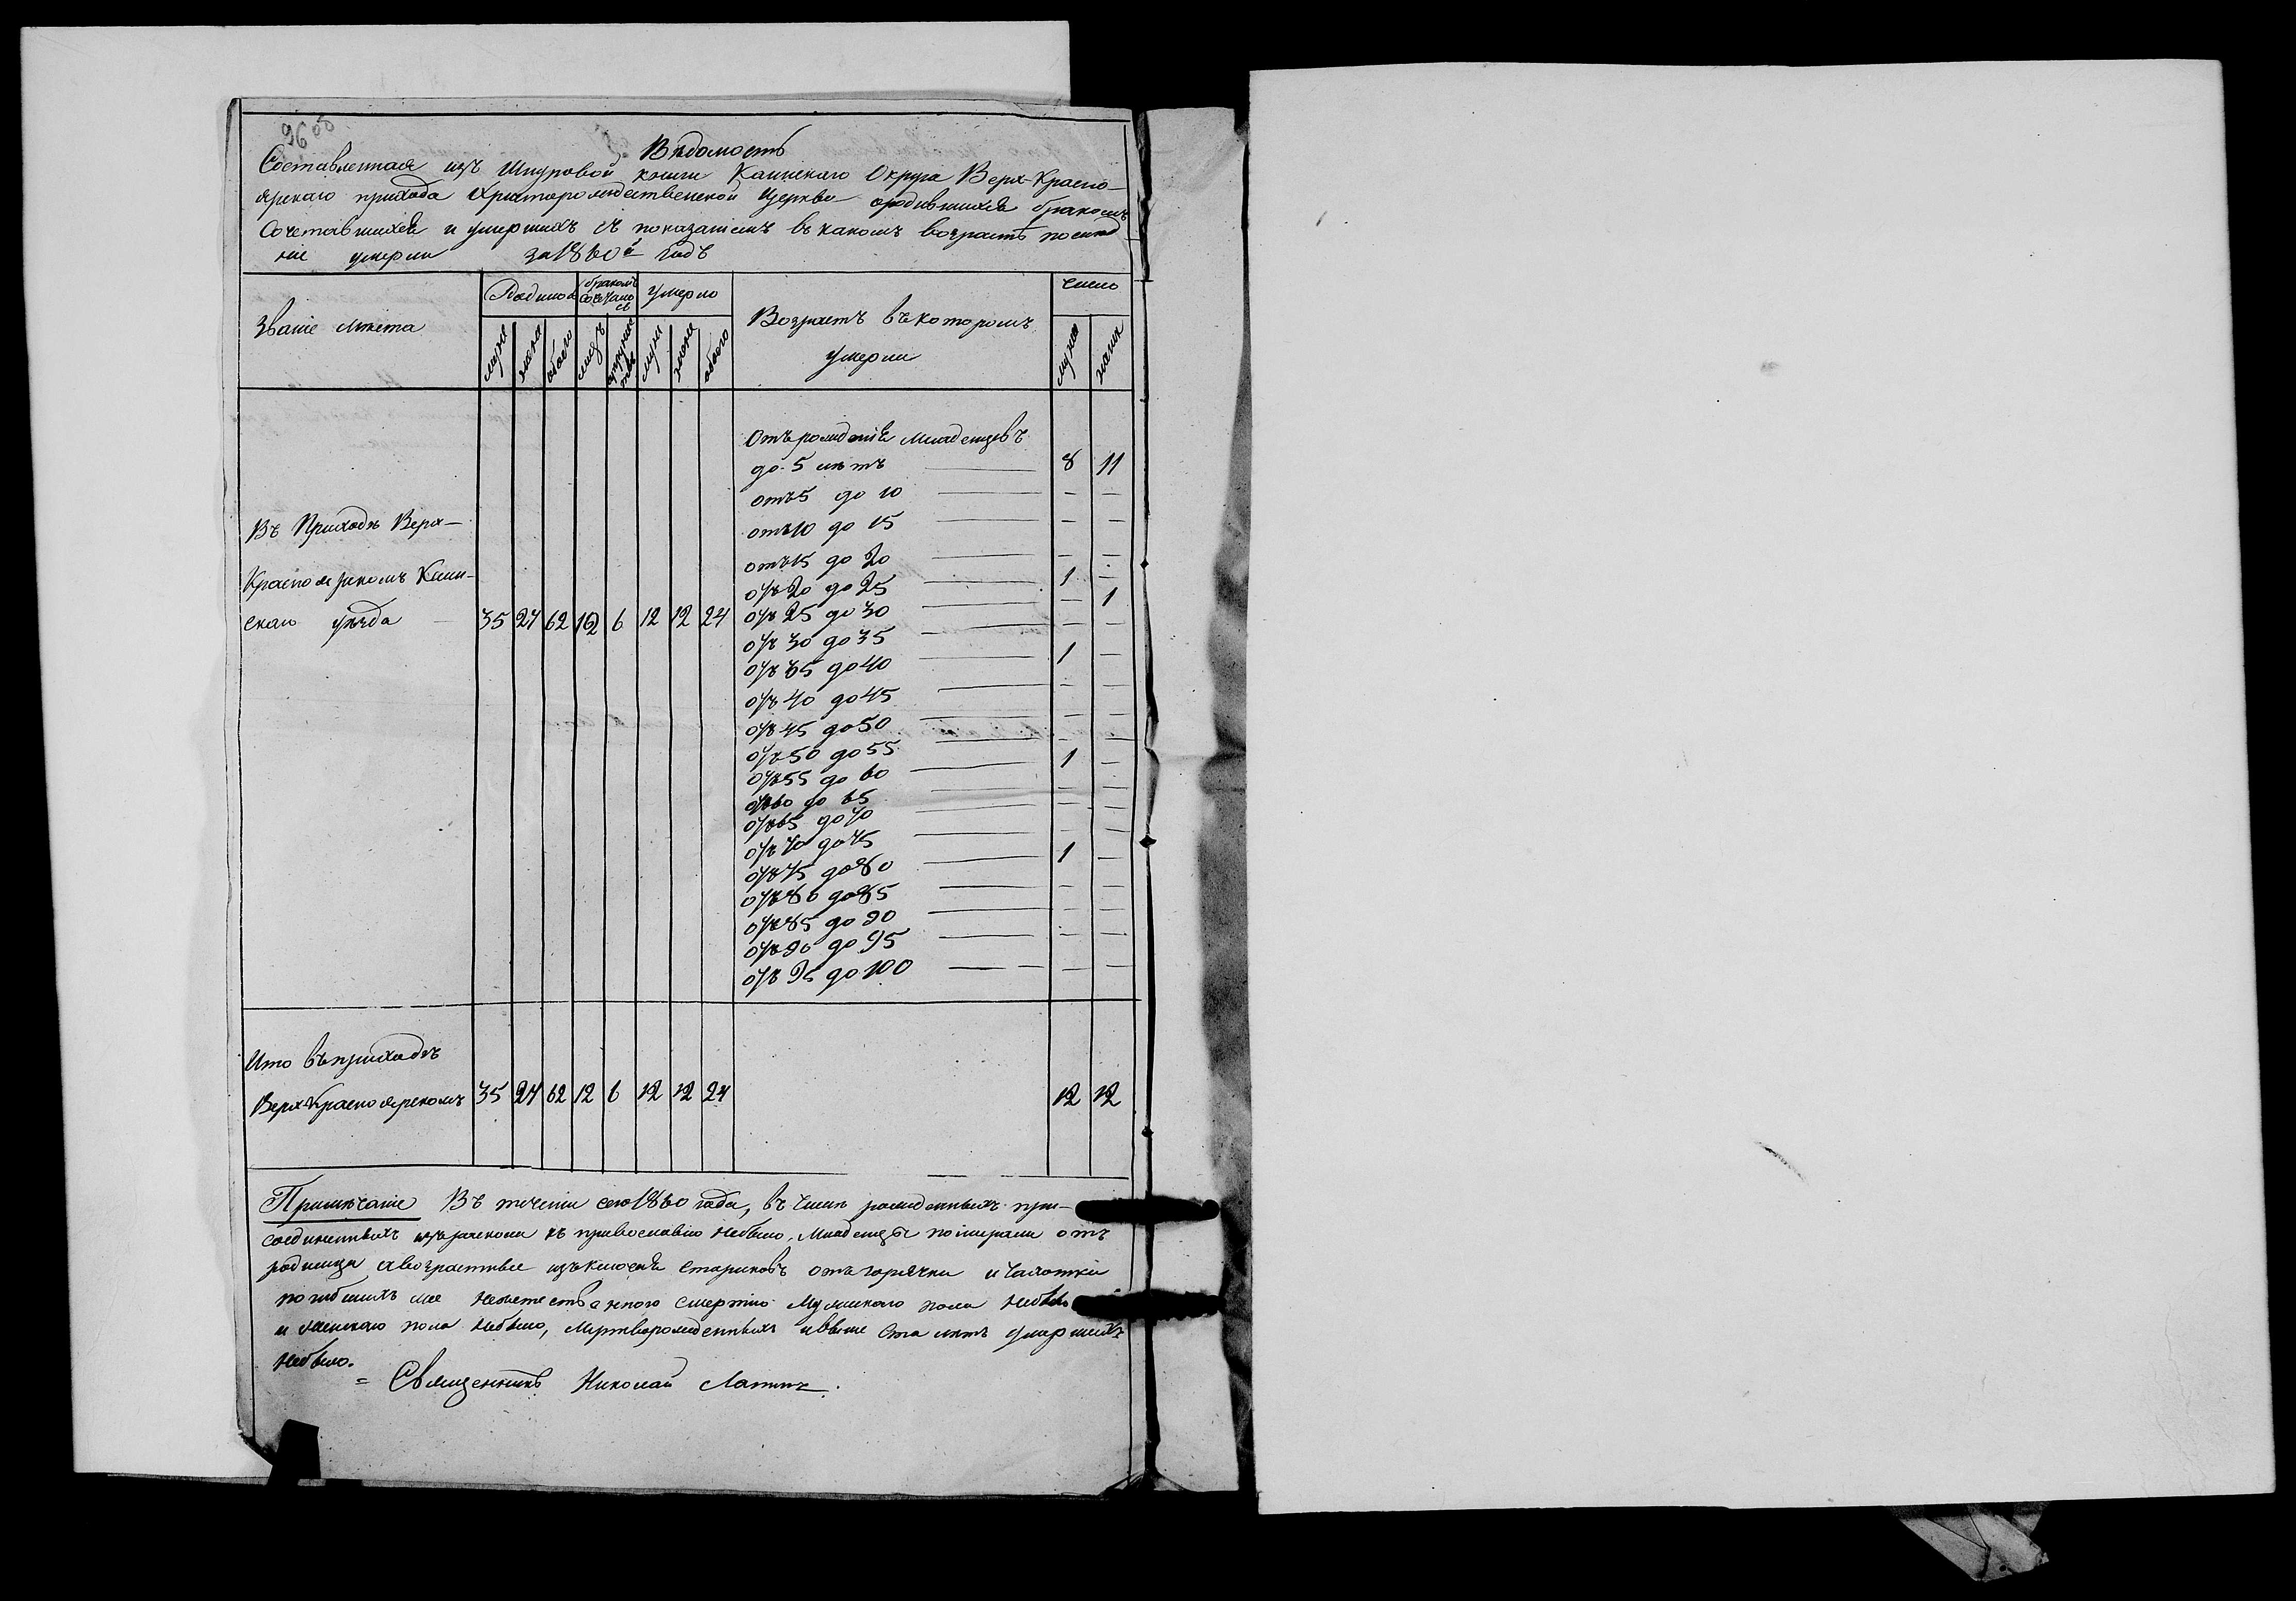 96 об
Вѣдомость
Составленная изъ Шнуровой книги Каинскаго Округа Верх-Красно-
ярскаго прихода Христорождественской Церкви о родившихся бракомъ
Сочетавшихся и умершихъ съ показаніемъ въ какомъ возрастѣ послѣд
ніе умерли за 1860й годъ
Званіе мѣста
Родилось
бракомъ
сочтано
сь
Умерло
Возрастъ въ которомъ
умерли
Число
муж
жена
обоего
лицъ
супруже
ствъ
муж
жена
обоего
муж
женск
Отъ рожденія младенцевъ
до 5 лѣтъ — 8 11
отъ 5 до 10 — — —
отъ 10 до 15 — — —
отъ 15 до 20 — — —
о/ъ 20 до 25 — 1 —
о/ъ 25 до 30 — — 1
о/ъ 30 до 35 — — —
о/ъ 35 до 40 — 1 —
о/ъ 40 до 45 — — —
о/ъ 45 до 50 — — —
о/ъ 50 до 55 — — —
о/ъ 55 до 60 — 1 —
о/ъ 60 до 65 — — —
о/ъ 65 до 70 — — —
о/ъ 70 до 75 — — —
о/ъ 75 до 80 — 1 —
о/ъ 80 до 85 — — —
о/ъ 85 до 90 — — —
о/ъ 90 до 95 — — —
о/ъ 95 до 100 — — —
Въ Приходѣ Верх-
Красноярскомъ Каин-
скаго уѣзда — 35 27 62 12 6 12 12 24
Ито въ приходѣ
Верх-Красноярскомъ 35 27 62 12 6 12 12 24 12 12
Примѣчаніе Въ теченіи сего 1860 года, въ числѣ рожденныхъ при-
соединенныхъ изъ раскола къ православію небыло. Младенцы помирали отъ
родимца а возрастные изъ ключая стариковъ отъ горячки и чахотки
погибшихъ же неестественною смертію Мужскаго пола небыло
и женскаго пола небыло, мертворожденныхъ и выше ста лѣтъ умершихъ
небыло.
Священникъ Николай Лапинъ.